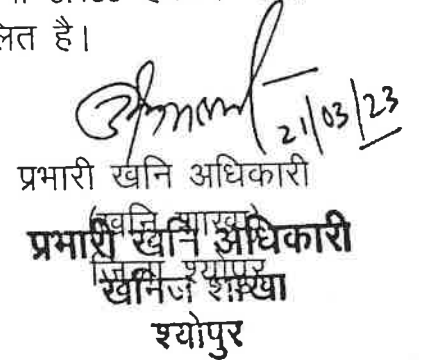 लित है।
21/03/23
प्रभारी खनि अधिकारी
(खनि शाखा)
प्रभारी खनि अधिकारी
जिला श्योपुर
खनिज शाखा
श्योपुर